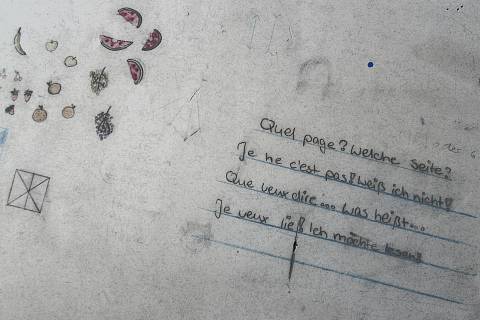 Quel page? Welche Seite?
Je he c'est pas! Weiß ich nicht!
Que veux dire... was heißt...
Je veux ließ! Ich möchte lesen!